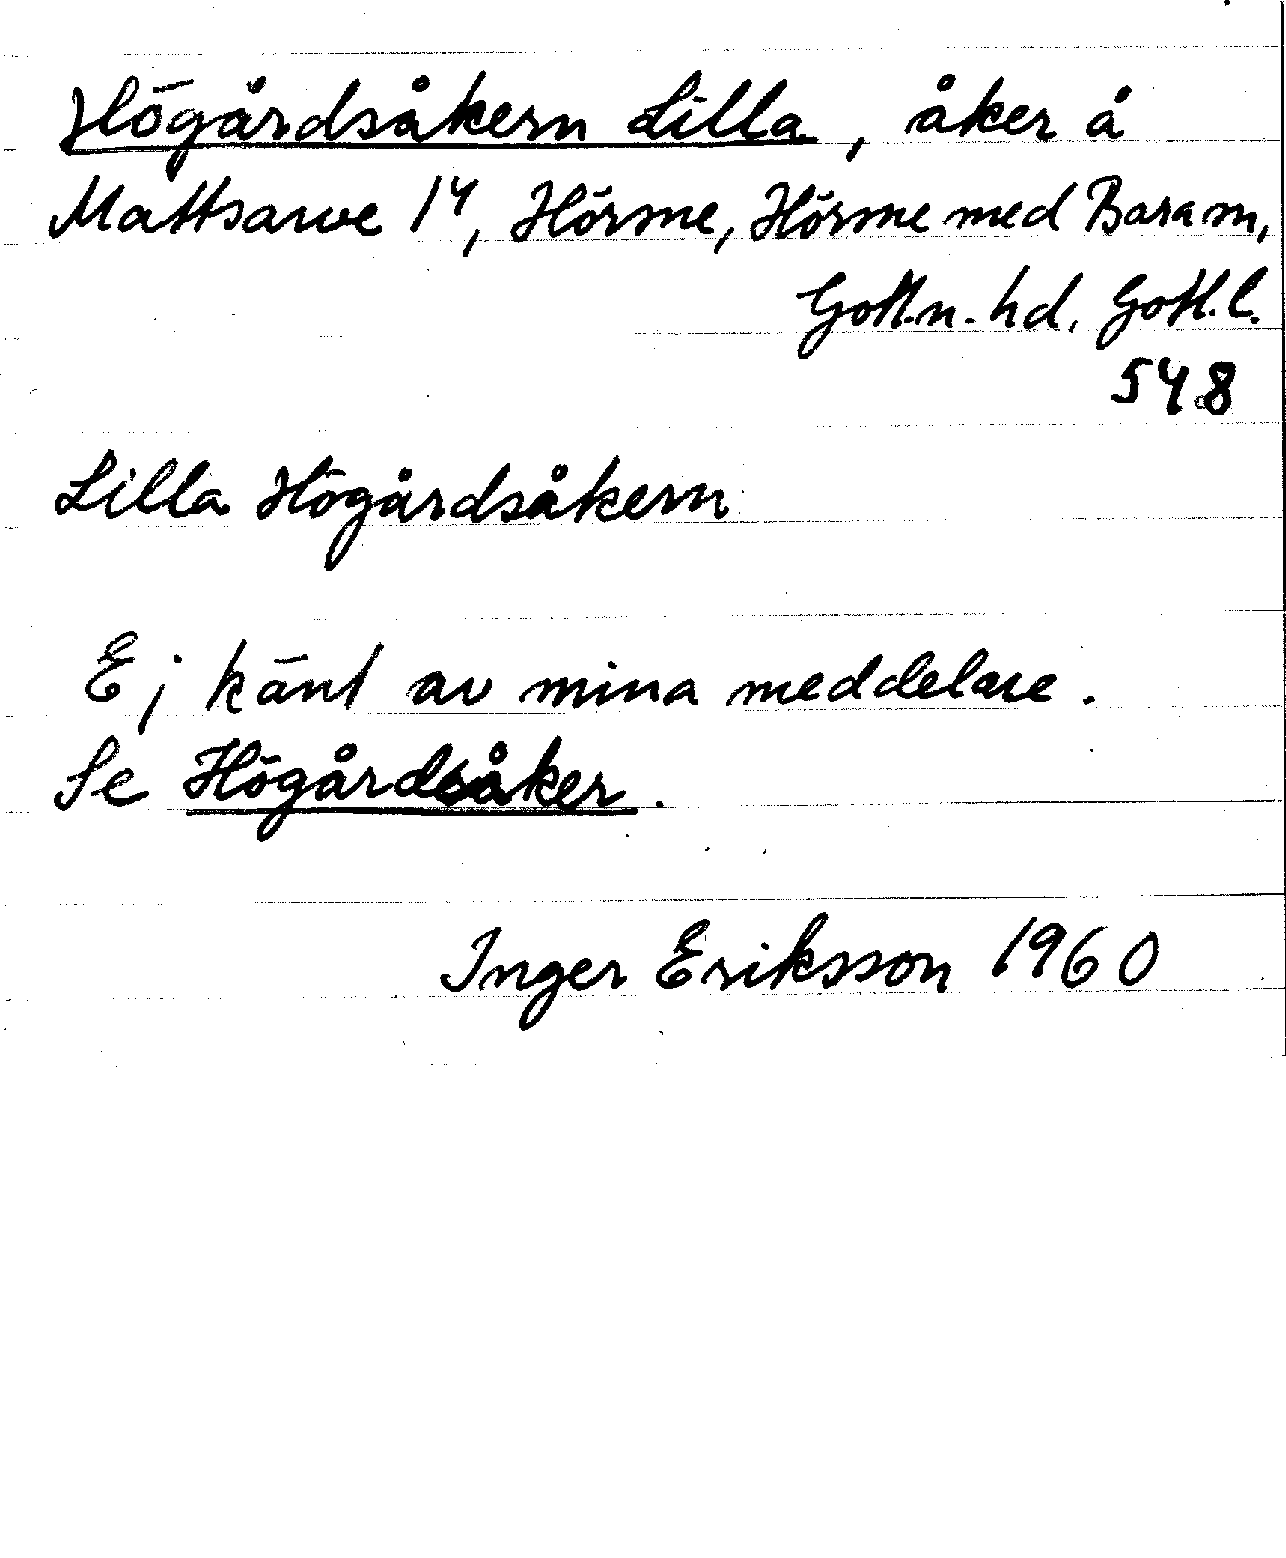 Högårdsåkern Lilla, åker å
Mattsarve 14, Hörsne, Hörsne med Bara sn,
Gotl. n. hd. Gotl. l.
548
Lilla Högårdsåkern
Ej känt av mina meddelare.
Se Högårdsåker.
Inger Eriksson 1960